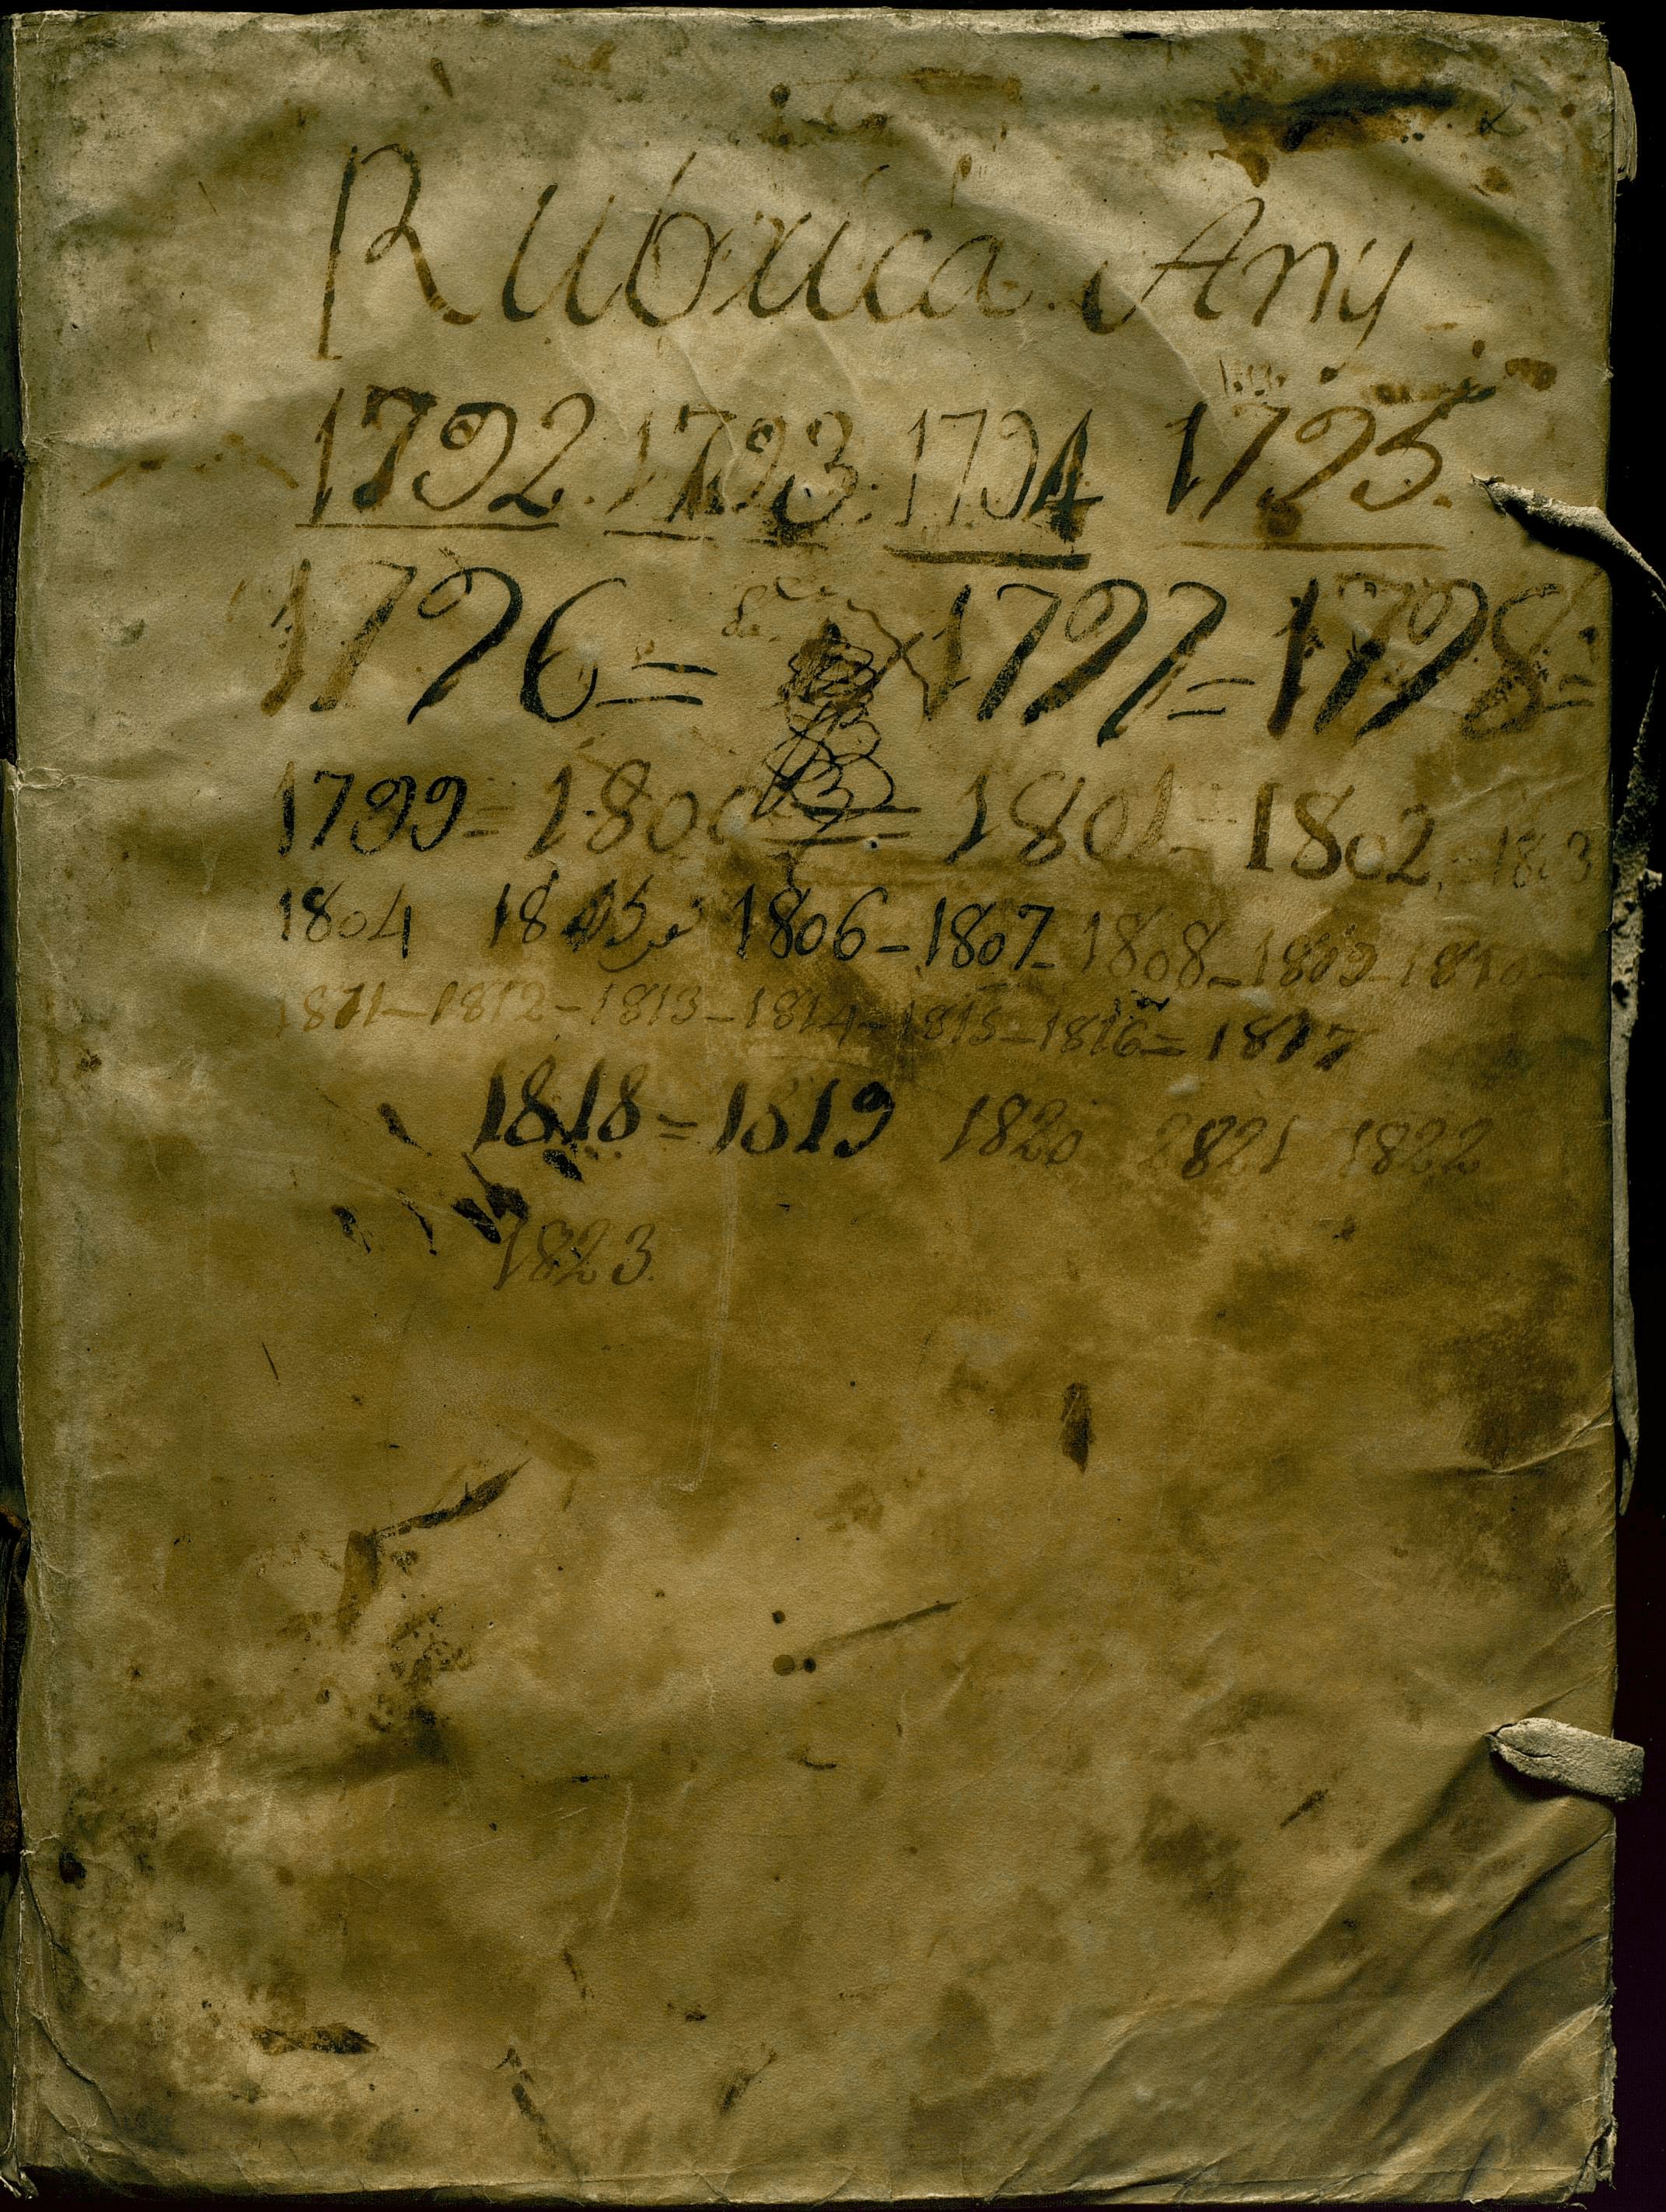 Rubrica Any
1792. 1793. 1794 1795.
1796= 1797=1798=
1799= 1800 = 1801- 1802. - 1803
1804 1805 1806-1807-1808-1809-1810-
1811-1812-1813-1814-1815-1816=1817
1818=1819 1820 1821 1822
1823.